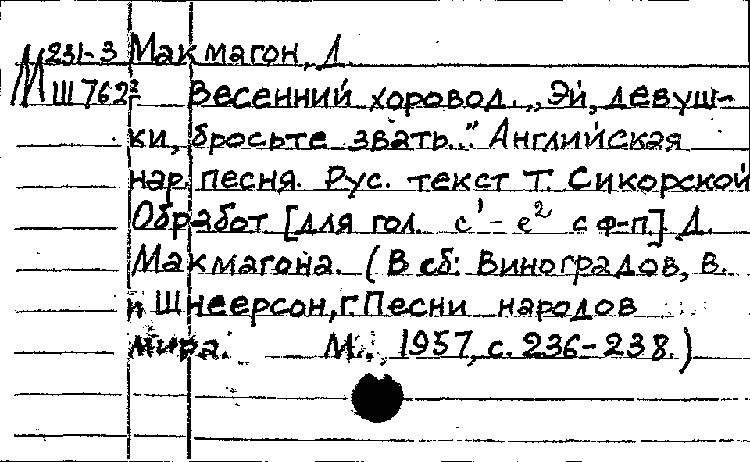 М 231-3 Макмагон, Д.
Ш 762² Весенний хоровод. „Эй, девуш-
ки, бросьте звать..." Английская
нар. песня. Рус. текст Т. Сикорской
Обработ [для гол. c¹ - e² с ф-п.] Д.
Макмагона. (В сб: Виноградов, В.
и Шнеерсон, Г. Песни народов
мира. М., 1957, с. 236-238.)